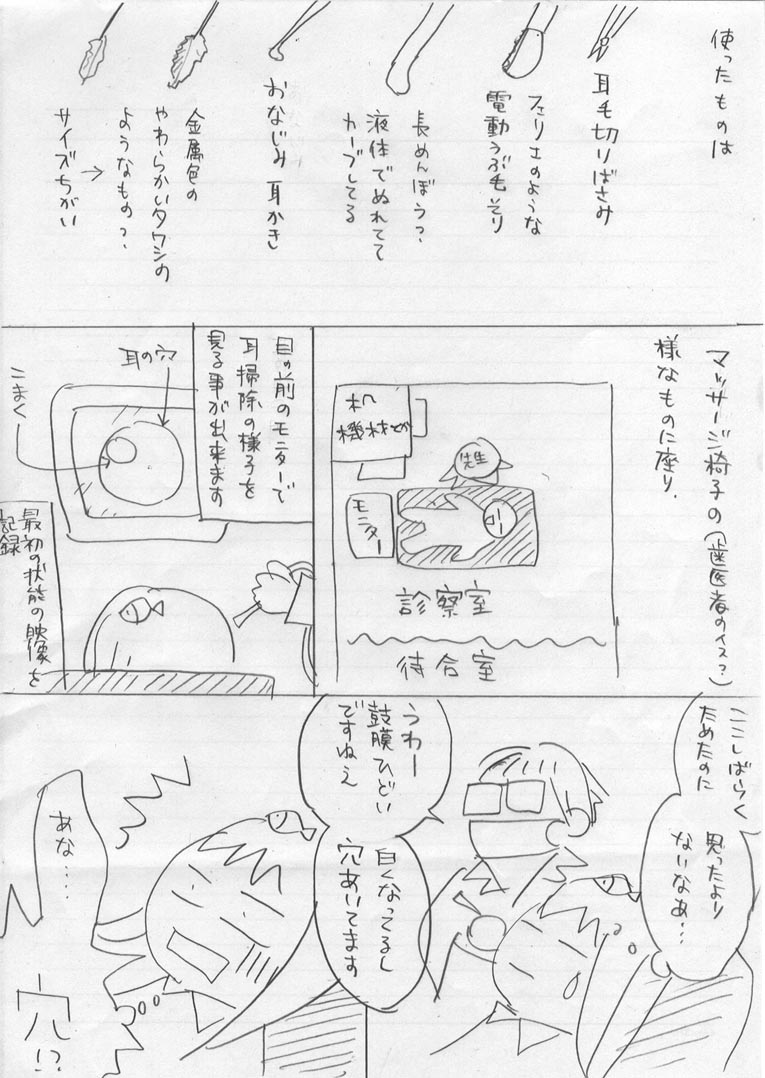 使ったものは
耳毛切りばさみ
フェリエのような
電動うぶ毛そり
長めんぼう？
液体でぬれてて
カーブしてる
おなじみ 耳かき
金属色の
やわらかいタワシの
ようなもの？
→
サイズちがい
マッサージ椅子の(歯医者のイス？)
様なものに座り、
機材とか
先生
モニター
診察室
待合室
目の前のモニターで
耳掃除の様子を
見る事が出来ます
耳の穴
こまく
最初の状態の映像を
記録
ここしばらく
ためたのに
思ったより
ないなぁ…
うわー
鼓膜ひどい
ですねぇ
白くなってるし
穴あいてます
あな…
穴!?